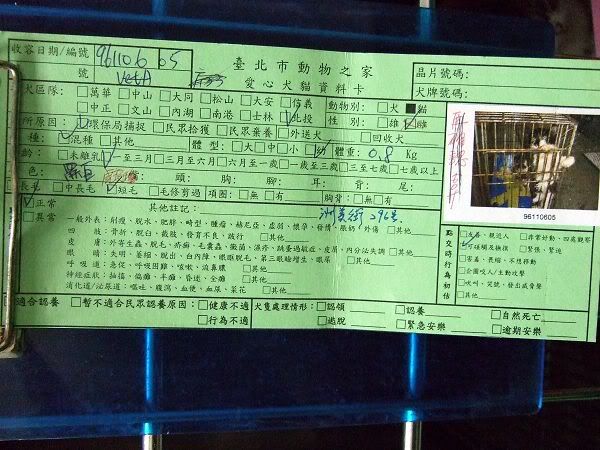 收容日期/編號 961106 05 臺北市動物之家 晶片號碼:
號 VetA 愛心犬貓資料卡 犬牌號碼:
犬區隊: □萬華 □中山 □大同 □松山 □大安 □信義 動物別: □犬 ■貓
□中正 □文山 □內湖 □南港 □士林 □北投 性別: □雄 □雌
所原因: □環保局捕捉 □民眾拾獲 □民眾棄養 □外送犬 □回收犬
種: □混種 □其他 體型: □大 □中 □小 □幼 體重: 0.8 Kg
齡: □未離乳 □一至三月 □三月至六月 □六月至一歲 □一歲至三歲 □三至七歲 □七歲以上
色: 頭: 胸: 耳: 背: 尾:
□長毛 □中長毛 □短毛 □毛修剪過 項圈: □無 □有 胸背: □無 □有
□正常 其他註記: 洲美街296巷
□異常 一般外表: 削瘦、脫水、肥胖、畸型、腫瘤、赫尼亞、虛弱、懷孕、發情、眼屎、外傷 □其他
四肢: 骨折、脫臼、截肢、發育不良、跛行 □其他
皮膚: 外寄生蟲、脫毛、疥癬、毛囊蟲、黴菌、濕疹、跳蚤過敏症、皮屑、內分泌失調 □其他
眼睛: 失明、萎縮、脫出、白內障、眼瞼脫毛、第三眼瞼增生、眼屎 □其他
呼吸道: 急促、呼吸困難、咳嗽、流鼻膿 □其他
神經症狀: 抽搐、偏癱、半癱、昏迷、全癱 □其他
消化道/泌尿道: 嘔吐、腹瀉、血便、血尿、菜花 □其他
96110605
點交時行為初估
□友善、親近人 □非常好動、四處觀察
□可碰觸及撫摸 □緊張、緊迫
□害羞、畏縮、不想移動
□企圖咬人/主動攻擊
□吠叫、哭號、發出威脅聲
□其他
□適合認養 □暫不適合民眾認養原因: □健康不適 犬隻處理情形: □認領 □認養 □自然死亡
□行為不適 □逃脫 □緊急安樂 □逾期安樂